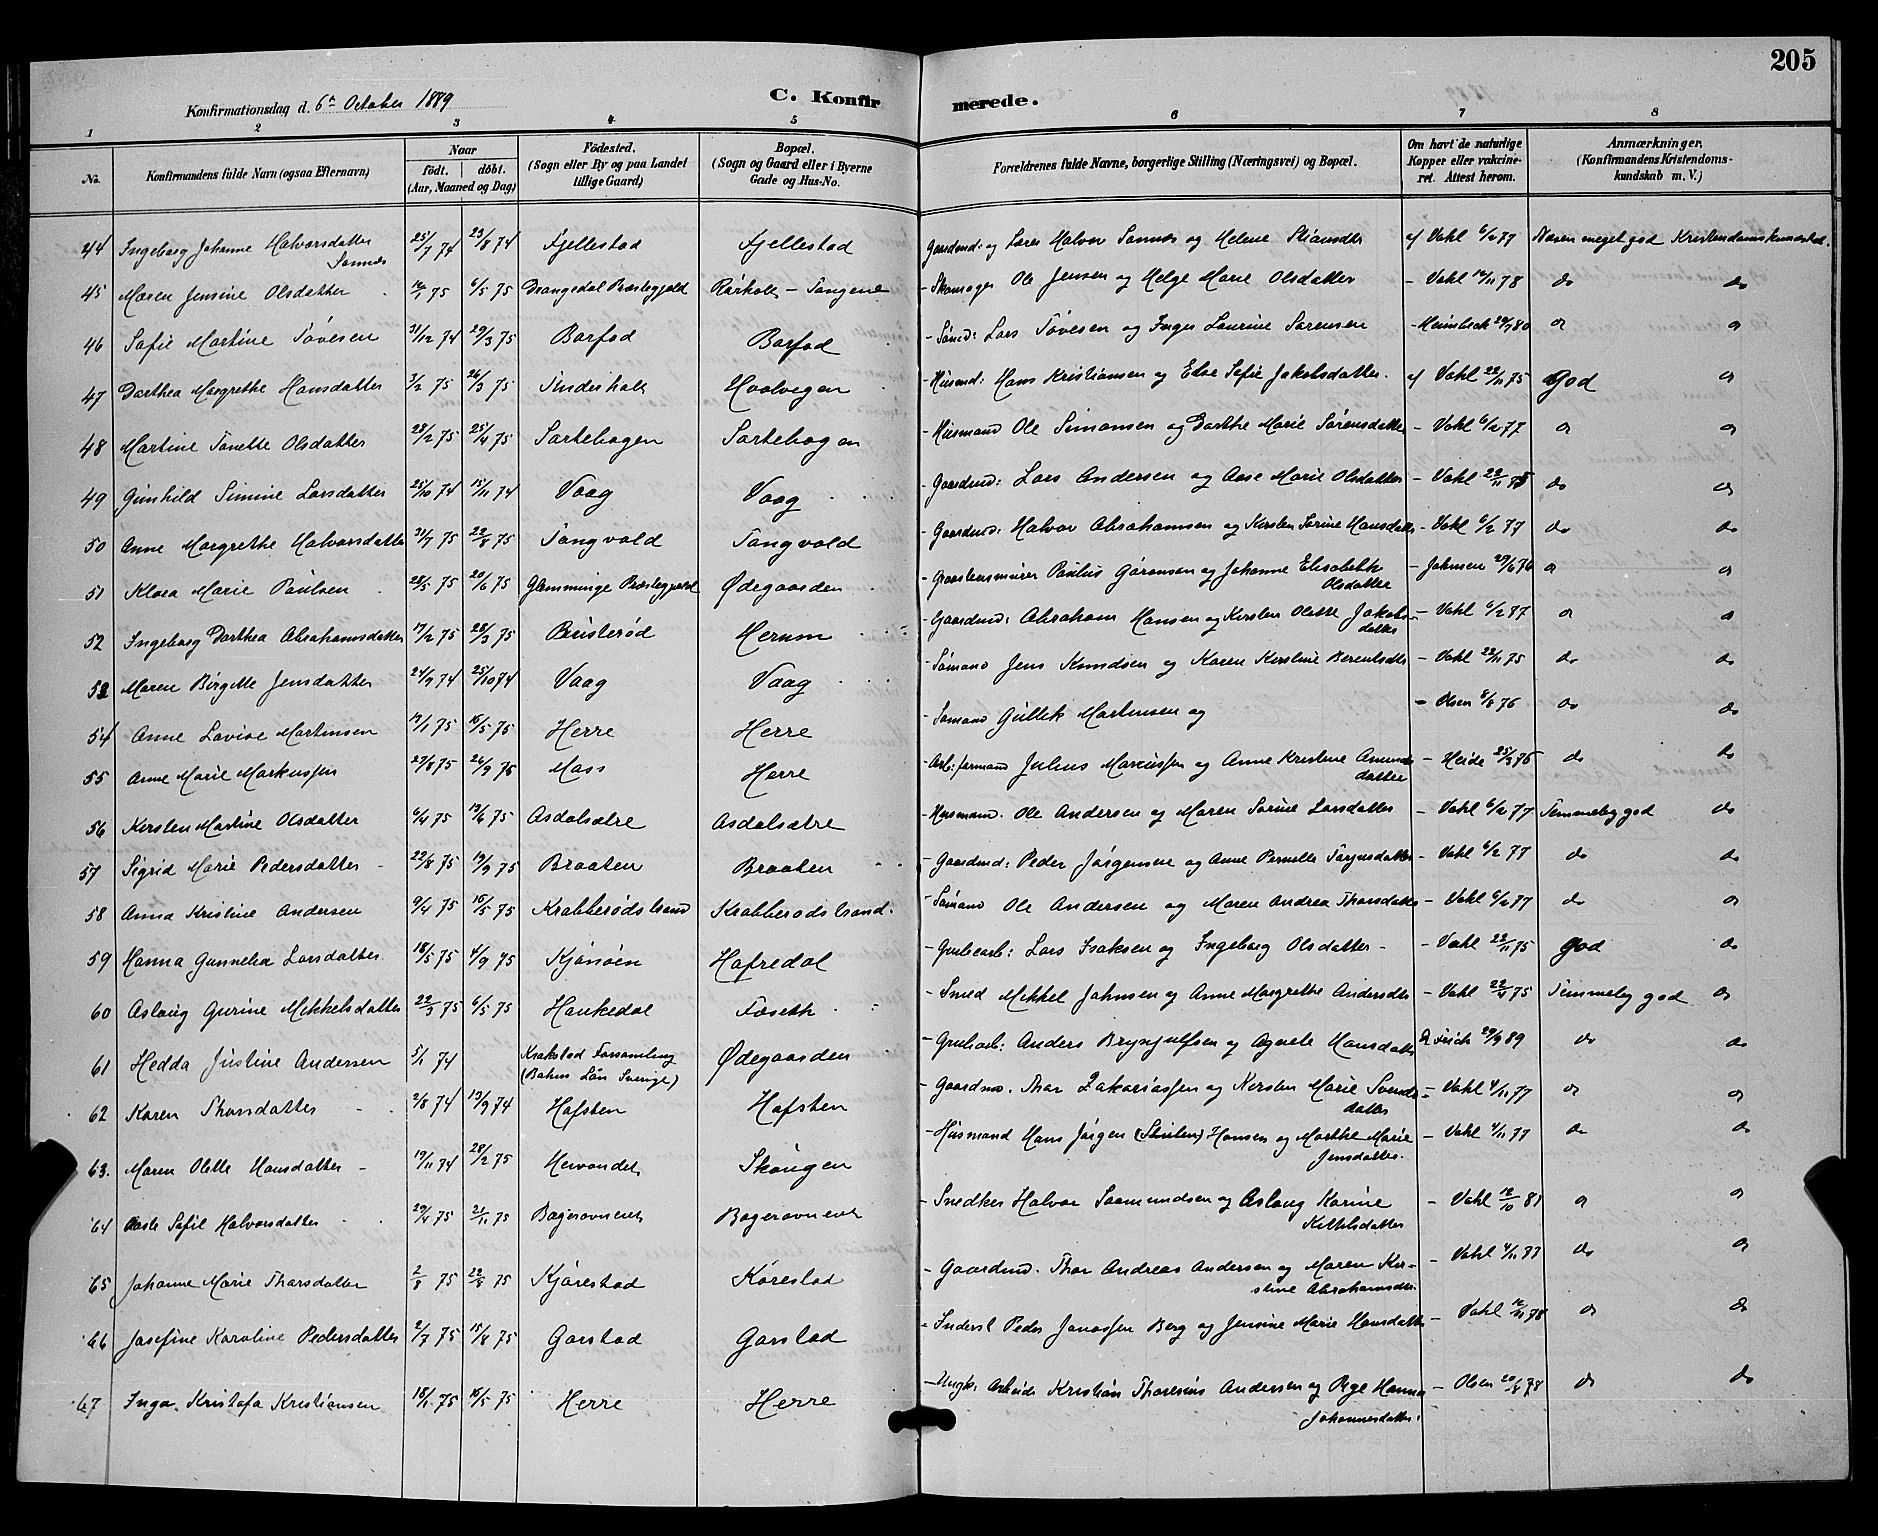 205
Konfirmationsdag d. 6te October 1889
C. Konfirmerede.
1 2 3 4 5 6 7 8
No. | Konfirmandens fulde Navn (ogsaa Efternavn) | Naar födt. döbt. (Aar, Maaned og Dag) | Födested. (Sogn eller By og paa Landet tillige Gaard) | Bopæl. (Sogn og Gaard eller i Byerne Gade og Hus-No. | Forældrenes fulde Navne, borgerlige Stilling (Næringsvei) og Bopæl. | Om havt de naturlige Kopper eller vakcineret. Attest herom. | Anmærkninger, (Konfirmandens Kristendomskundskab m. V.)
44 Ingeborg Johanne Halvorsdatter Sannes 25/7 74 23/8 74 Fjellestad Fjellestad Gaardmd: og Halvor Sannes og Helene af Vahl 6/2 77 Næsten meget god Kristendomskundskab.
45 Maren Jensine Olsdatter 75 6/5 75 Drangedal Præstegjeld - Tangene - Skomager Ole Jensen og Helge Marie Olsdatter - Vahl 14/11 78 do do
46 Sofie Martine Tövesen 31/12 74 29/3 75 Barfod Barfod - Sömd: Lars Tövesen og Inger Laurine Sörensen - Heimbeck 80 do do
47 Dorthea Margrethe Hansdatter 3/2 75 26/3 75 Tinderholt Hvalvegen - Husmd: Hans Kristiansen og Sofie Jakobsdatter. af Vahl 22/11 75 God do
48 Martine Tonette Olsdatter 28/2 75 25/4 75 Sortebogen Sortebogen - Husmand Ole Simonsen og Dorthe Marie Sörensdatter - Vahl 6/2 77 do do
49 Gunhild Simine Larsdatter 25/10 74 15/11 74 Vaag Vaag - Gaardmd: Lars Andersen og Aase Marie Olsdatter - Vahl 22/11 75 do do
50 Anne Margrethe Halvorsdatter 31/7 75 22/8 75 Tangvald Tangvald - Gaardmd: Halvor Abrahamsen og Kirsten Sörine Hansdatter - Vahl 6/2 77 do do
51 Klara Marie Paulsen 28/5 75 20/6 75 Glemminge Præstegjeld Ödegaarden - Paulus Göransen og Johanne Elisabeth Olsdatter - Johnsen 29/6 76 do do
52 Ingeborg Dorthea Abrahamsdatter 17/2 75 28/3 75 Buisteröd Herum - Gaardmd: Abraham Hansen og Kirsten Olette Jakobsdatter - Vahl 6/2 77 do do
53 Maren Birgitte Jensdatter 24/9 74 25/10 74 Vaag Vaag - Sömand Jens Knudsen og Karen Kirstine Berentsdtr - Vahl 22/11 75 do do
54 Anne Lovise Martinsen 14/1 75 16/5 75 Herre Herre - Sömand Gullik Martinsen og - Olsen 8/8 76 do do
55 Anne Marie Markussen 29/8 75 26/9 75 Moss Herre - Arb: formand Julius Marcussen og Anne Kristine Amundsdatter - Heide 25/3 76 do do
56 Kirsten Martine Olsdatter 6/4 75 13/6 75 Asdalsætre Asdalsætre - Husmand. Ole Andersen og Maren Sörine Larsdatter - Vahl 6/2 77 Temmelig god do
57 Sigrid Marie Pedersdatter 22/8 75 19/9 75 Braaten Braaten - Gaardmd: Peder Jörgensen og Anne Pernille - Vahl 6/2 77 do do
58 Anna Kristine Andersen 9/4 75 16/5 75 Krabberödstrand Krabberödstrand. - Sömand Ole Andersen og Maren Andrea Thorsdatter - Vahl 6/2 77 do do
59 Hanna Gunnelea Larsdatter 18/5 75 4/9 75 Kjönöen Hafredal - Grubearb: Lars Isaksen og Ingeborg Olsdatter - Vahl 22/11 75 god do
60 Aslaug Gurine Mikkelsdatter 22/3 75 6/5 75 Haukedal Foseth - Smed Mikkel Johnsen og Anne Margrethe Andersdtr - Vahl 22/4 75 Temmelig god do
61 Hedda Justine Andersen 5/1 74 Krokstad Forsamling (Bahus Län Sverige) Ödegaarden - Grubearb: Anders Brynjulfsen og Agnete Hansdatter 29/9 89 do do
62 Karen Thorsdatter 2/8 74 13/9 74 Hafsten Hafsten - Gaardmd. Thor Zakariassen og Kirsten Marie Svendsdatter - Vahl 4/11 77 do do
63. Maren Olette Hansdatter 17/11 74 28/2 75 Skougen - Husmand Hans Jörgen Hansen og Marthe Marie Jensdatter. - Vahl 4/11 77 do do
64 Aaste Sofie Halvorsdatter 29/4 75 21/11 75 Bageraavnene Bageraavnene - Snedker Halvor Saamundsen og Aslaug Karine Kittilsdatter - Vahl 12/10 81 do do
65 Johanne Marie Thorsdatter 2/8 75 22/8 75 Kjörestad Körestad - Gaardmd. Thor Andreas Andersen og Maren Kirstine Abrahamsdtr. - Vahl 4/11 77 do do
66 Josefine Karoline Pedersdatter 2/7 75 15/8 75 Gorstad Gorstad - Inderst Peder Jonassen Berg og Jensine Marie Hansdatter - Vahl 12/11 78 do do
67 Inga Kristofa Kristiansen 18/1 75 16/5 75 Herre Herre - Arbeider Kristian Andersen og Hanna Johannesdatter. - Olsen 20/8 78 do do